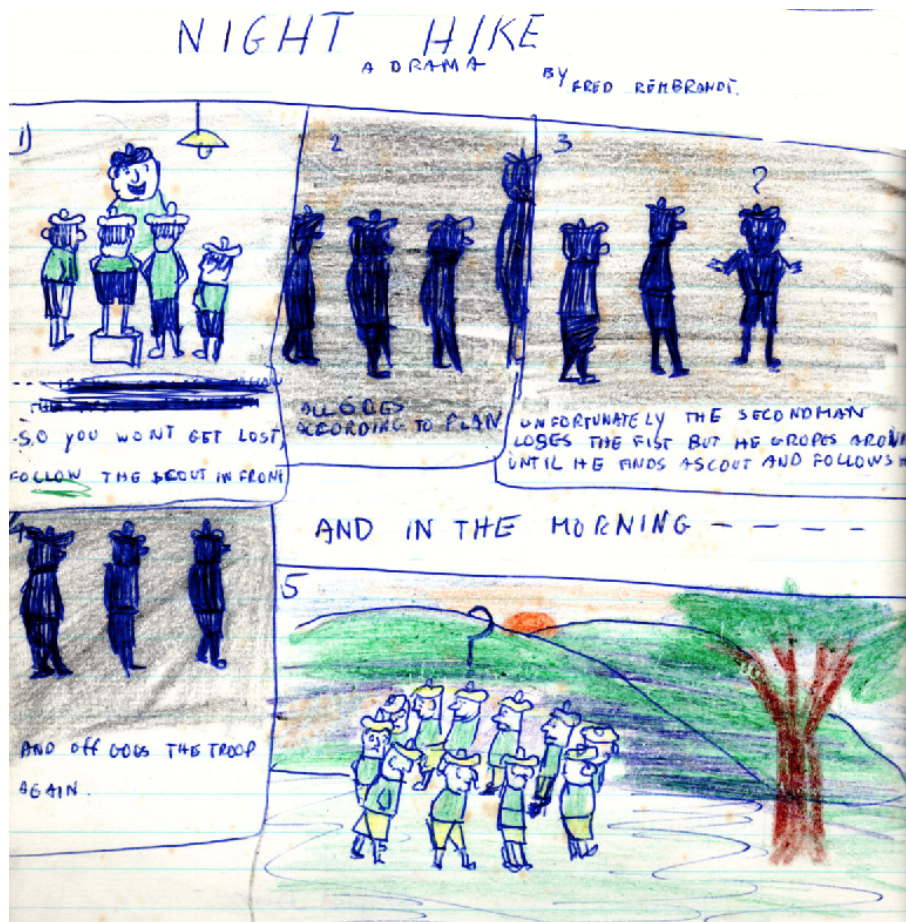 NIGHT HIKE
A DRAMA
BY FRED REMBRANDT.
1)
SO YOU WONT GET LOST,
FOLLOW THE SCOUT IN FRONT
2
ALL GOES
ACCORDING TO PLAN
3
?
UNFORTUNATELY THE SECOND MAN
LOSES THE FIST BUT HE GROPES AROUN
UNTIL HE FINDS A SCOUT AND FOLLOWS H
4
AND OFF GOES THE TROOP
AGAIN.
AND IN THE MORNING - - - -
5
?